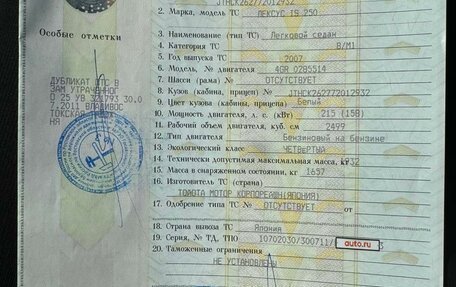 Особые отметки
ДУБЛИКАТ ПТС В
ЗАМ УТРАЧЕННОГ
О 25 УВ 321793 30.0
7.2011 ВЛАДИВОС
ТОКСКАЯ
НЯ
JTHCK262772012932
2. Марка, модель ТС ЛЕКСУС IS 250
3. Наименование (тип ТС) Легковой седан
4. Категория ТС B/M1
5. Год выпуска ТС 2007
6. Модель, № двигателя 4GR 0285514
7. Шасси (рама) № ОТСУТСТВУЕТ
8. Кузов (кабина, прицеп) № JTHCK262772012932
9. Цвет кузова (кабины, прицепа) Белый
10. Мощность двигателя, л. с. (кВт) 215 (158)
11. Рабочий объем двигателя, куб. см 2499
12. Тип двигателя Бензиновый на бензине
13. Экологический класс ЧЕТВЕРТЫЙ
14. Технически допустимая максимальная масса, кг 1932
15. Масса в снаряженном состоянии, кг 1657
16. Изготовитель ТС (страна)
ТОЙОТА МОТОР КОРПОРЕЙШН(ЯПОНИЯ)
17. Одобрение типа ТС № ОТСУТСТВУЕТ
18. Страна вывоза ТС Япония
19. Серия, № ТД, ТПО 10702030/300711/
auto.ru
3
20. Таможенные ограничения
НЕ УСТАНОВЛЕНЫ